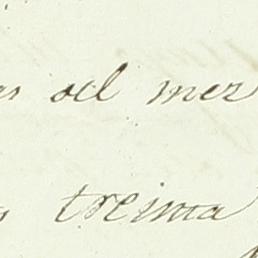 del mez
treinta